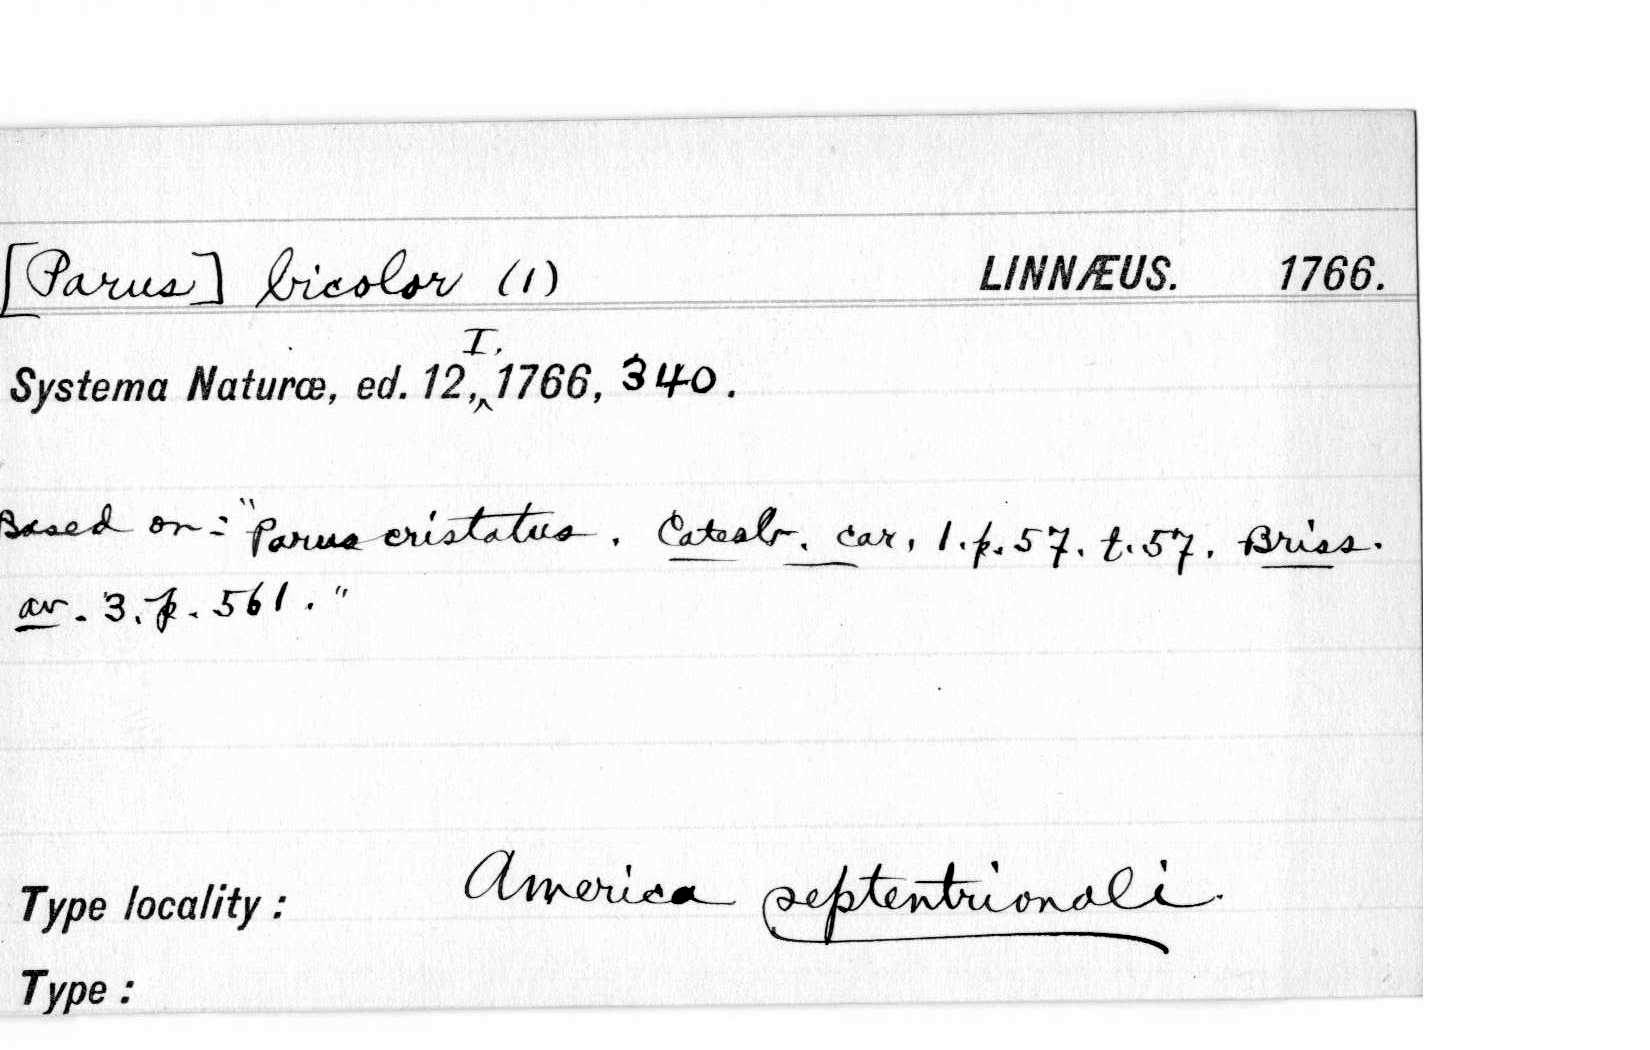 [Parus] bicolor (1) LINNÆUS. 1766.
I.
Systema Naturæ, ed. 12,‸ 1766, 340.
Based on:- "Parus cristatus. Catesb. car. 1. p. 57. t. 57. Briss.
av. 3. p. 561."
Type locality: America septentrionali.
Type: